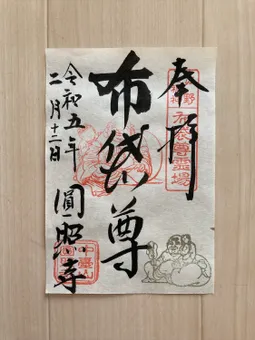 奉拝
布袋尊
令和五年
二月十二日
圓照寺
布袋尊霊場